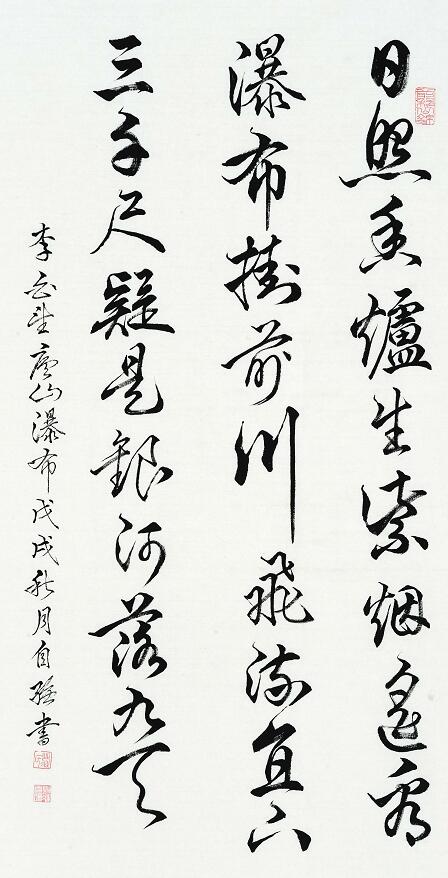 日照香爐生紫烟遙看
瀑布掛前川飛流直下
三千尺疑是銀河落九天
李白望廬山瀑布戊戌秋月自強書